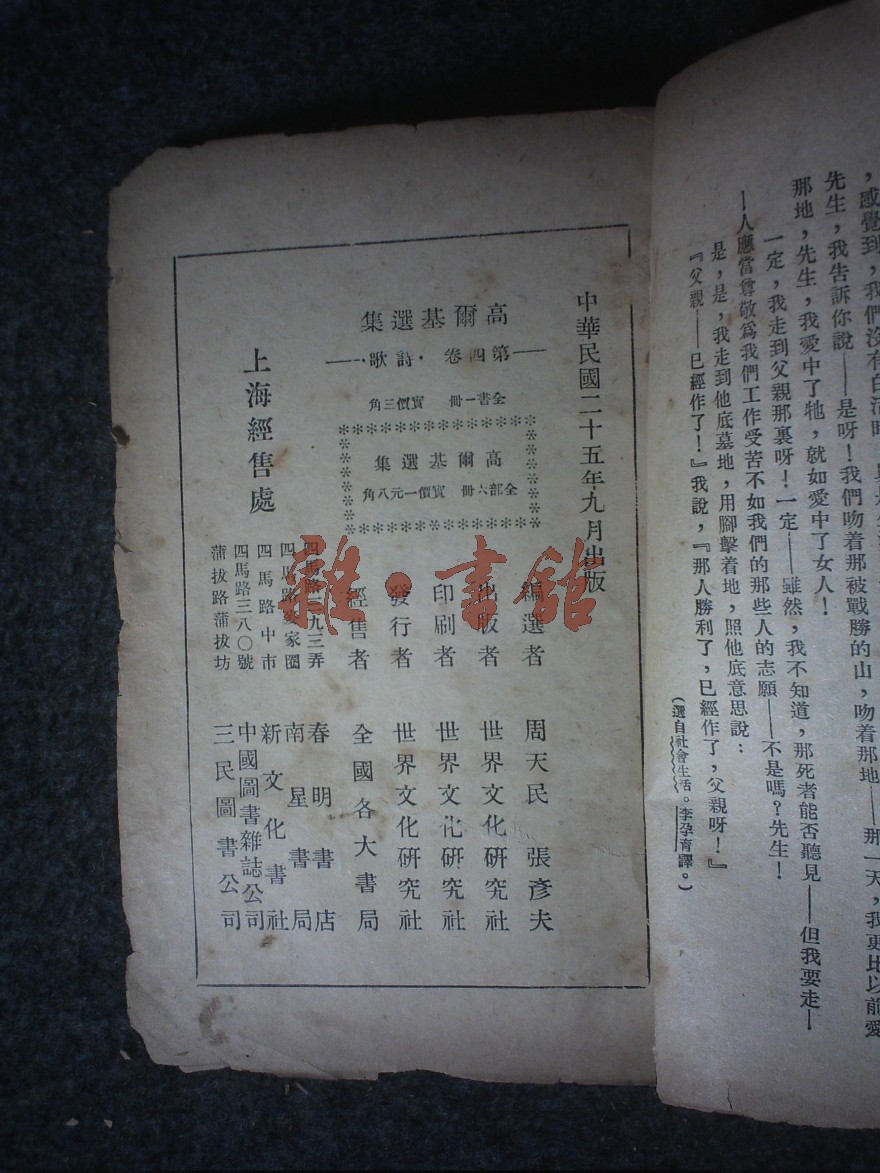 ，感覺到，我們沒有白活時
先生，我告訴你說——是呀！我們吻着那被戰勝的山，吻着那地——那一天，我更比以前愛
那地，先生，我愛中了牠，就如愛中了女人！
一定，我走到父親那裏呀！一定——雖然，我不知道，那死者能否聽見——但我要走—
—人應當尊敬爲我們工作受苦不如我們的那些人的志願——不是嗎？先生！
是，是，我走到他底墓地，用腳擊着地，照他底意思說：
『父親——已經作了！』我說，『那人勝利了，已經作了，父親呀！』
（選自社會生活。李孕育譯。）
中華民國二十五年九月出版
高爾基選集
——第四卷·詩歌·——
全書一冊 實價三角
高爾基選集
全部六冊 實價一元八角
編選者 周天民 張彥夫
出版者 世界文化研究社
印刷者 世界文化研究社
發行者 世界文化研究社
經售者 全國各大書局
上海經售處
四馬路二九三弄 春明書店
四馬路麥家圈 南星書局
四馬路中市 新文化書社
四馬路三八〇號 中國圖書雜誌公司
蒲拔路蒲拔坊 三民圖書公司
雜·書館